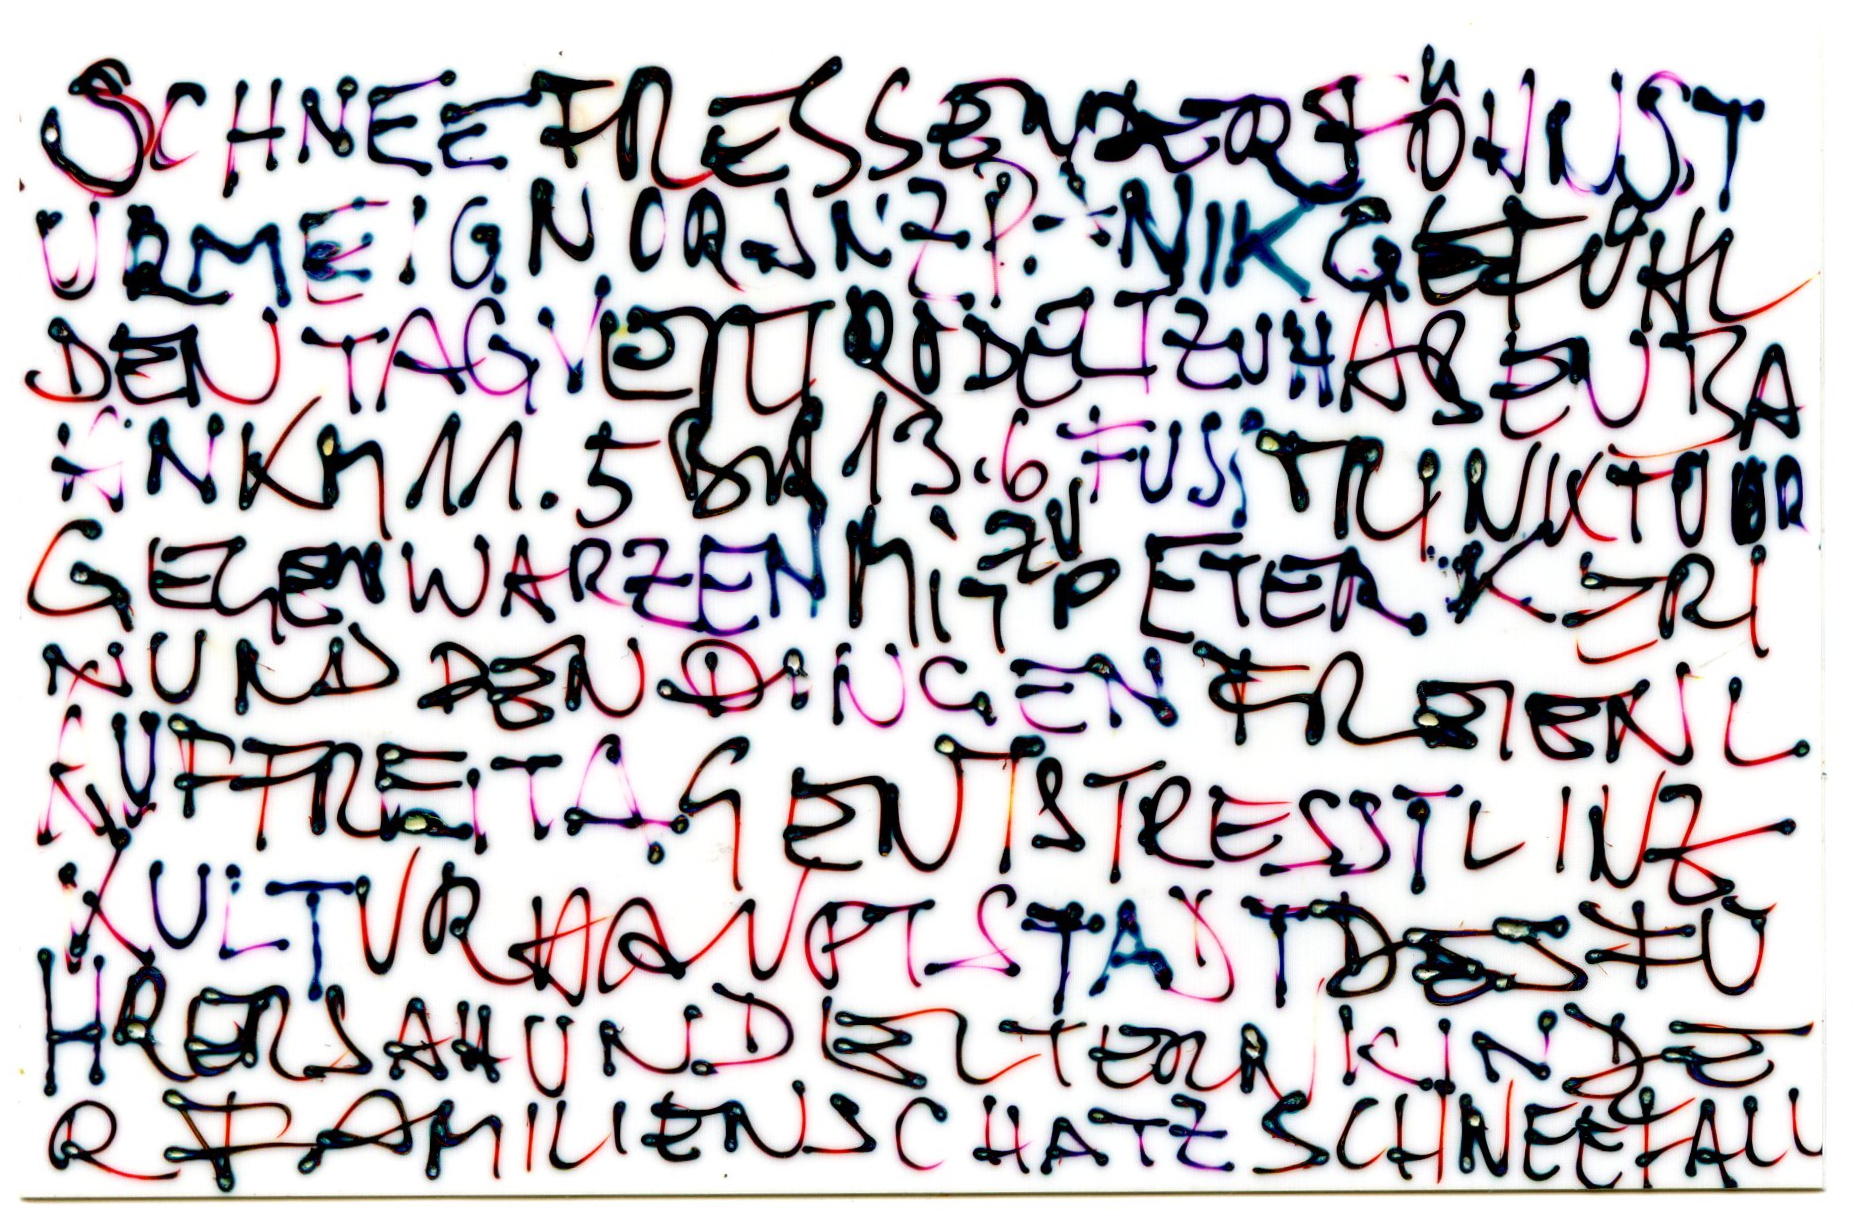 SCHNEEFRESSENDERFÖHNST
URMEIGNORINZP.+NIKGEFÜHL
DENTAGVERTRÖDELTZUHABENZA
ANKM11.5BH13.6FUSSTRINKTOUR
GEGENWARZENMITZUPETERKERI
NUNDDENDINGENFREIENL
AUFFREITAGENTSTRESSTLINZ
KULTURHAUPTSTADTDESFÜ
HRERSAHUNDELTERNKINDE
RFAMILIENSCHATZSCHNEEFALL